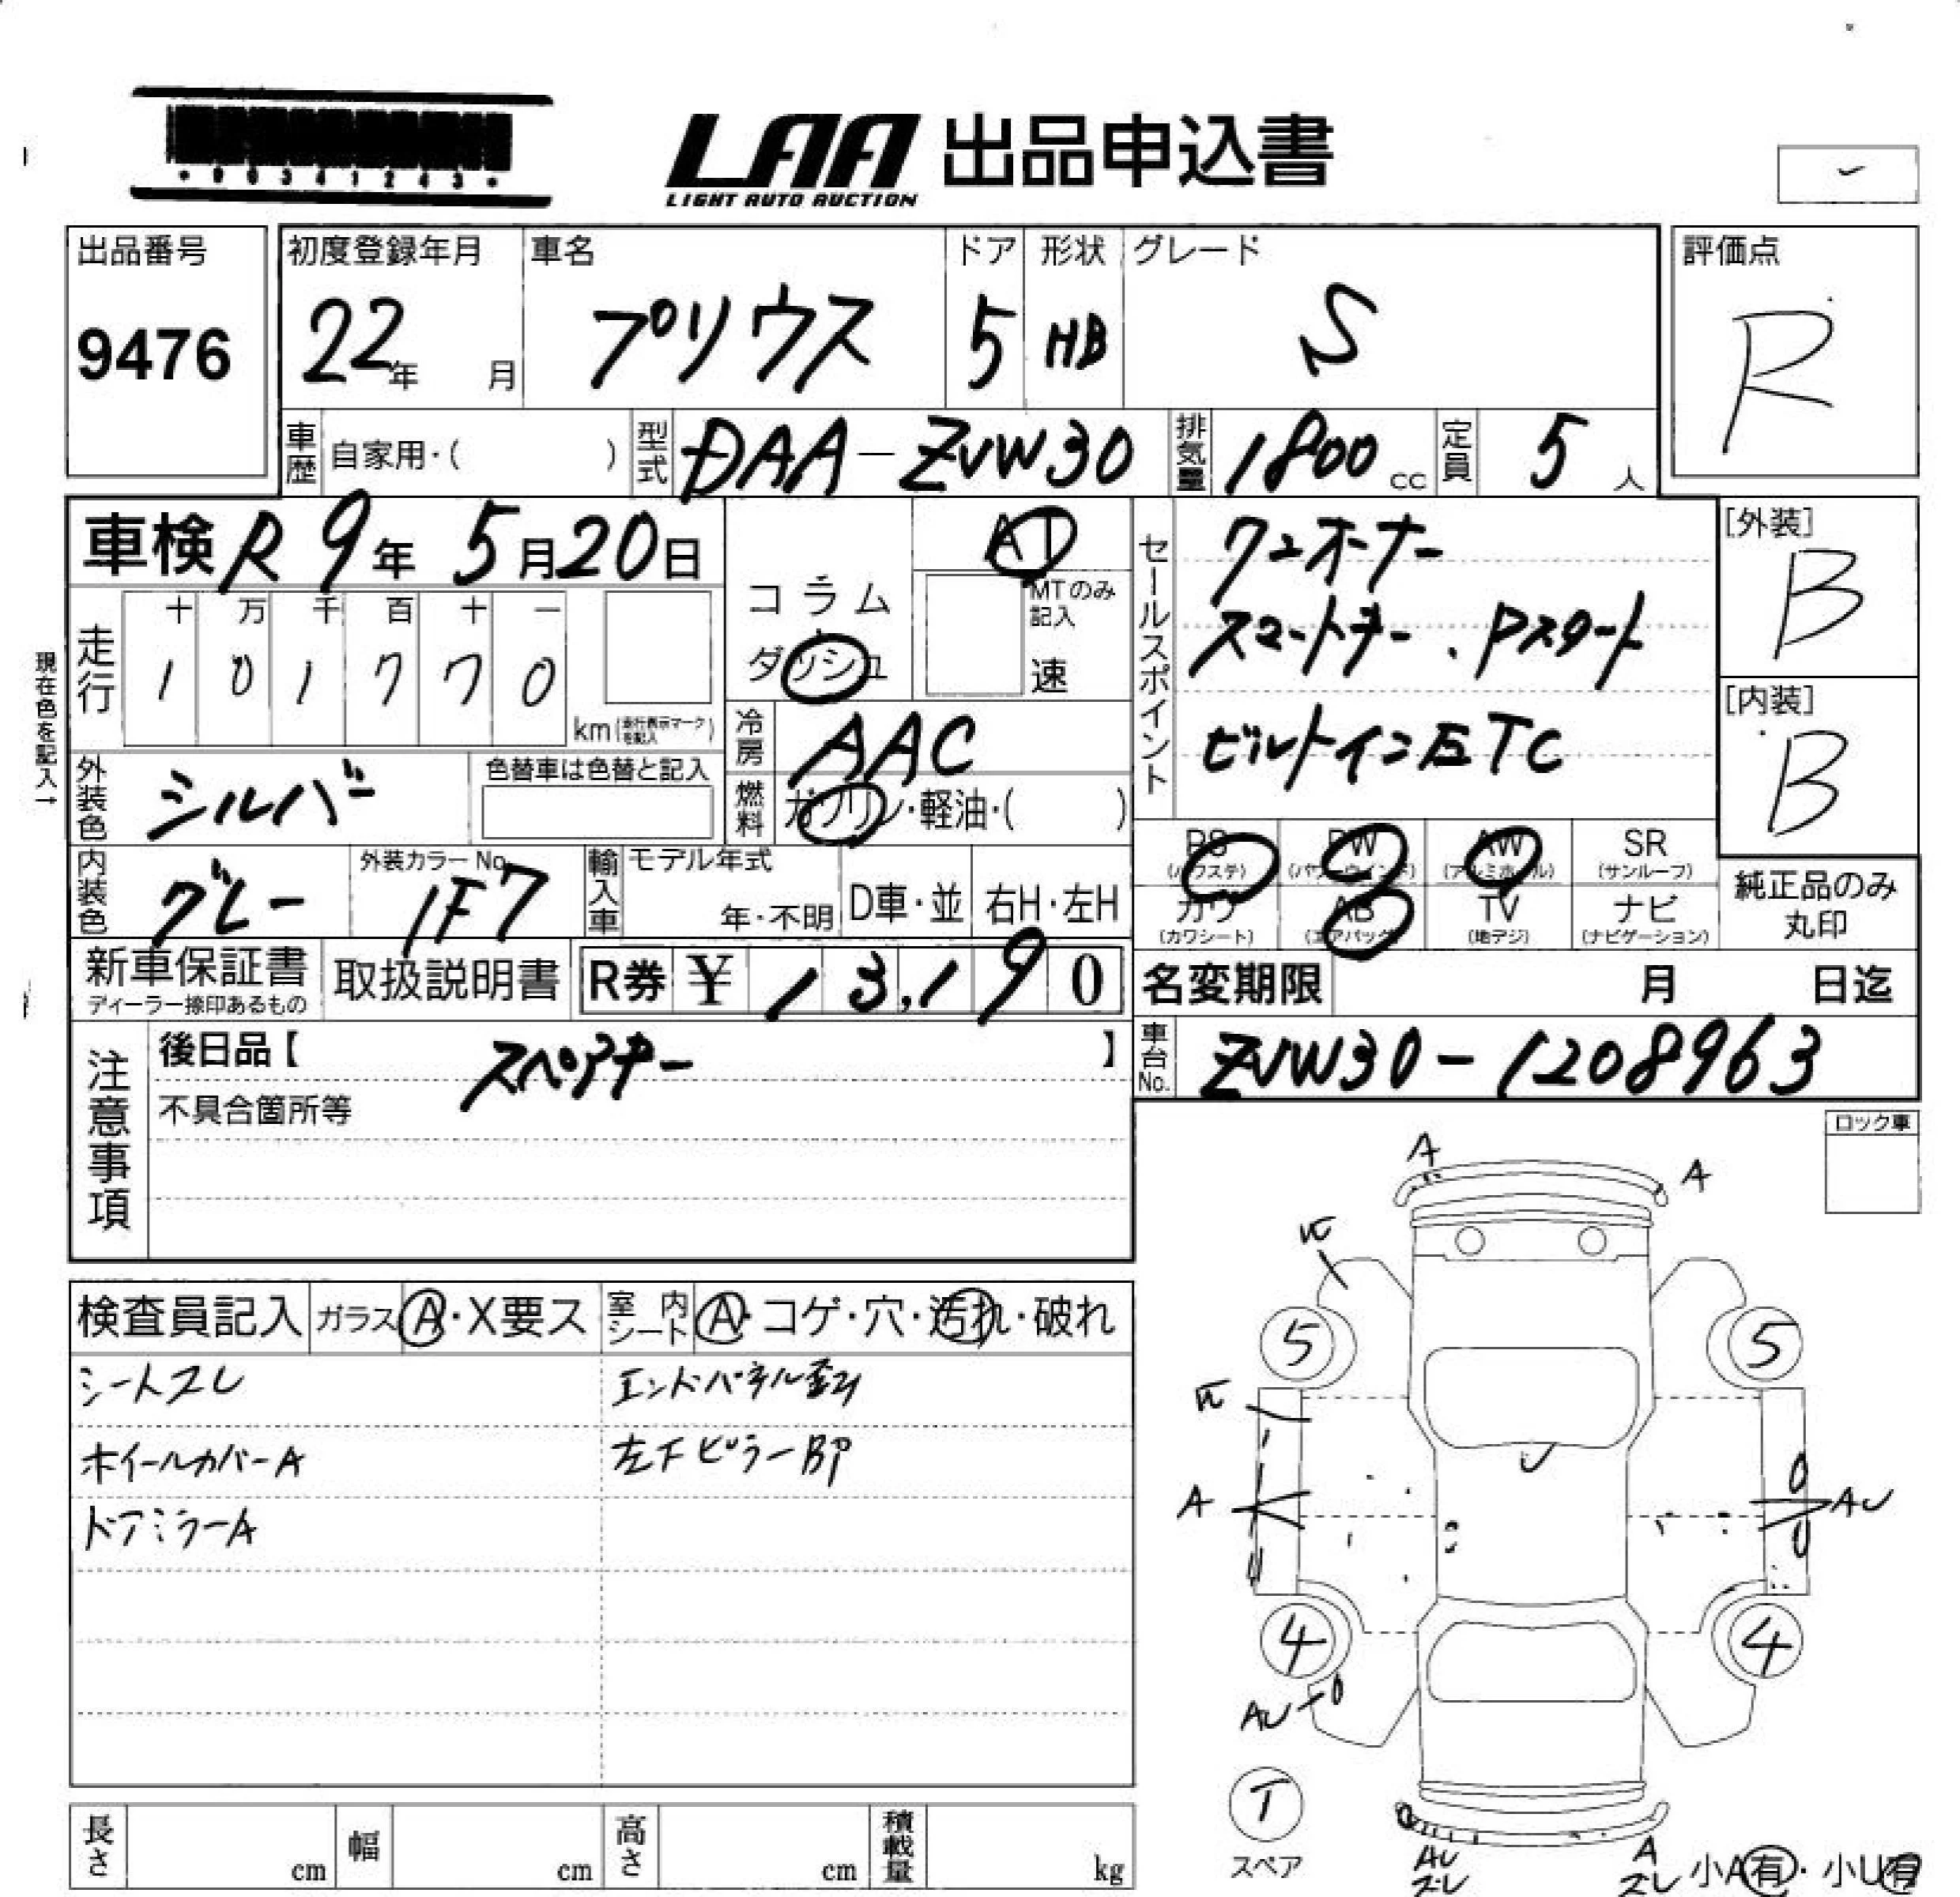 *00341243*
LAA 出品申込書
LIGHT AUTO AUCTION
出品番号 初度登録年月 車名 ドア 形状 グレード 評価点
9476 22年 月 プリウス 5 HB S R
車歴 自家用・( ) 型式 DAA-ZVW30 排気量 1800 cc 定員 5 人
車検 R 9年 5月20日 AT
コラム
ダッシュ
MTのみ記入
速
セールスポイント
ワンオーナー
スマートキー、Pスタート
ビルトインETC
[外装]
B
[内装]
B
現在色を記入→
走行 十 万 千 百 十 一
1 0 1 7 7 0
km(走行表示マークを記入)
冷房 AAC
燃料 ガソリン・軽油・( )
外装色 シルバー 色替車は色替と記入
内装色 グレー 外装カラーNo. 1F7
輸入車 モデル年式 年・不明 D車・並 右H・左H
PS (パワステ) PW (パワーウインド) AW (アルミホイル) SR (サンルーフ)
カワ (カワシート) AB (エアバッグ) TV (地デジ) ナビ (ナビゲーション)
純正品のみ
丸印
新車保証書 取扱説明書 R券 ¥ 13,190
ディーラー捺印あるもの
名変期限 月 日迄
注意事項
後日品【 スペアキー 】
不具合箇所等
車台No. ZVW30-1208963
ロック車
検査員記入 ガラス A・X要ス 室内シート A・コゲ・穴・汚れ・破れ
シートスレ エンドパネル歪ミ
ホイールカバーA 左下ピラーBP
ドアミラーA
A
A
5
5
A
AU
4
4
AU
T
スペア
AU
スレ
A
スレ
小A有・小U有
長さ cm 幅 cm 高さ cm 積載量 kg